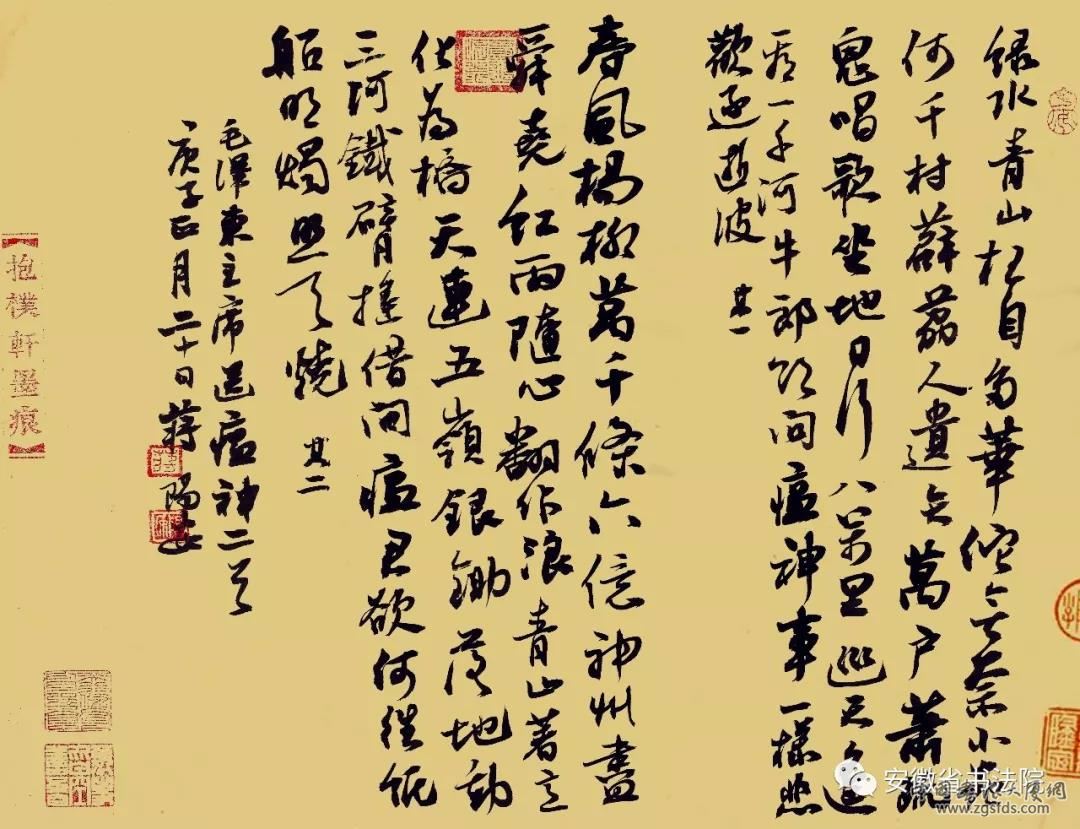 緑水青山枉自多華佗无奈小蟲
何千村薜荔人遺矢萬户蕭疏
鬼唱歌坐地日行八万里巡天遥
看一千河牛郎欲问瘟神事一樣悲
歡逐逝波 其一
春風楊柳萬千條六億神州盡
舜堯紅雨隨心翻作浪青山著意
化為橋天連五嶺銀鋤落地動
三河鐵臂摇借问瘟君欲何往纸
船明燭照天燒 其二
毛澤東主席送瘟神二首
庚子正月二十日蔣
【抱樸軒墨痕】
安徽省书法院
www.zgsfds.com